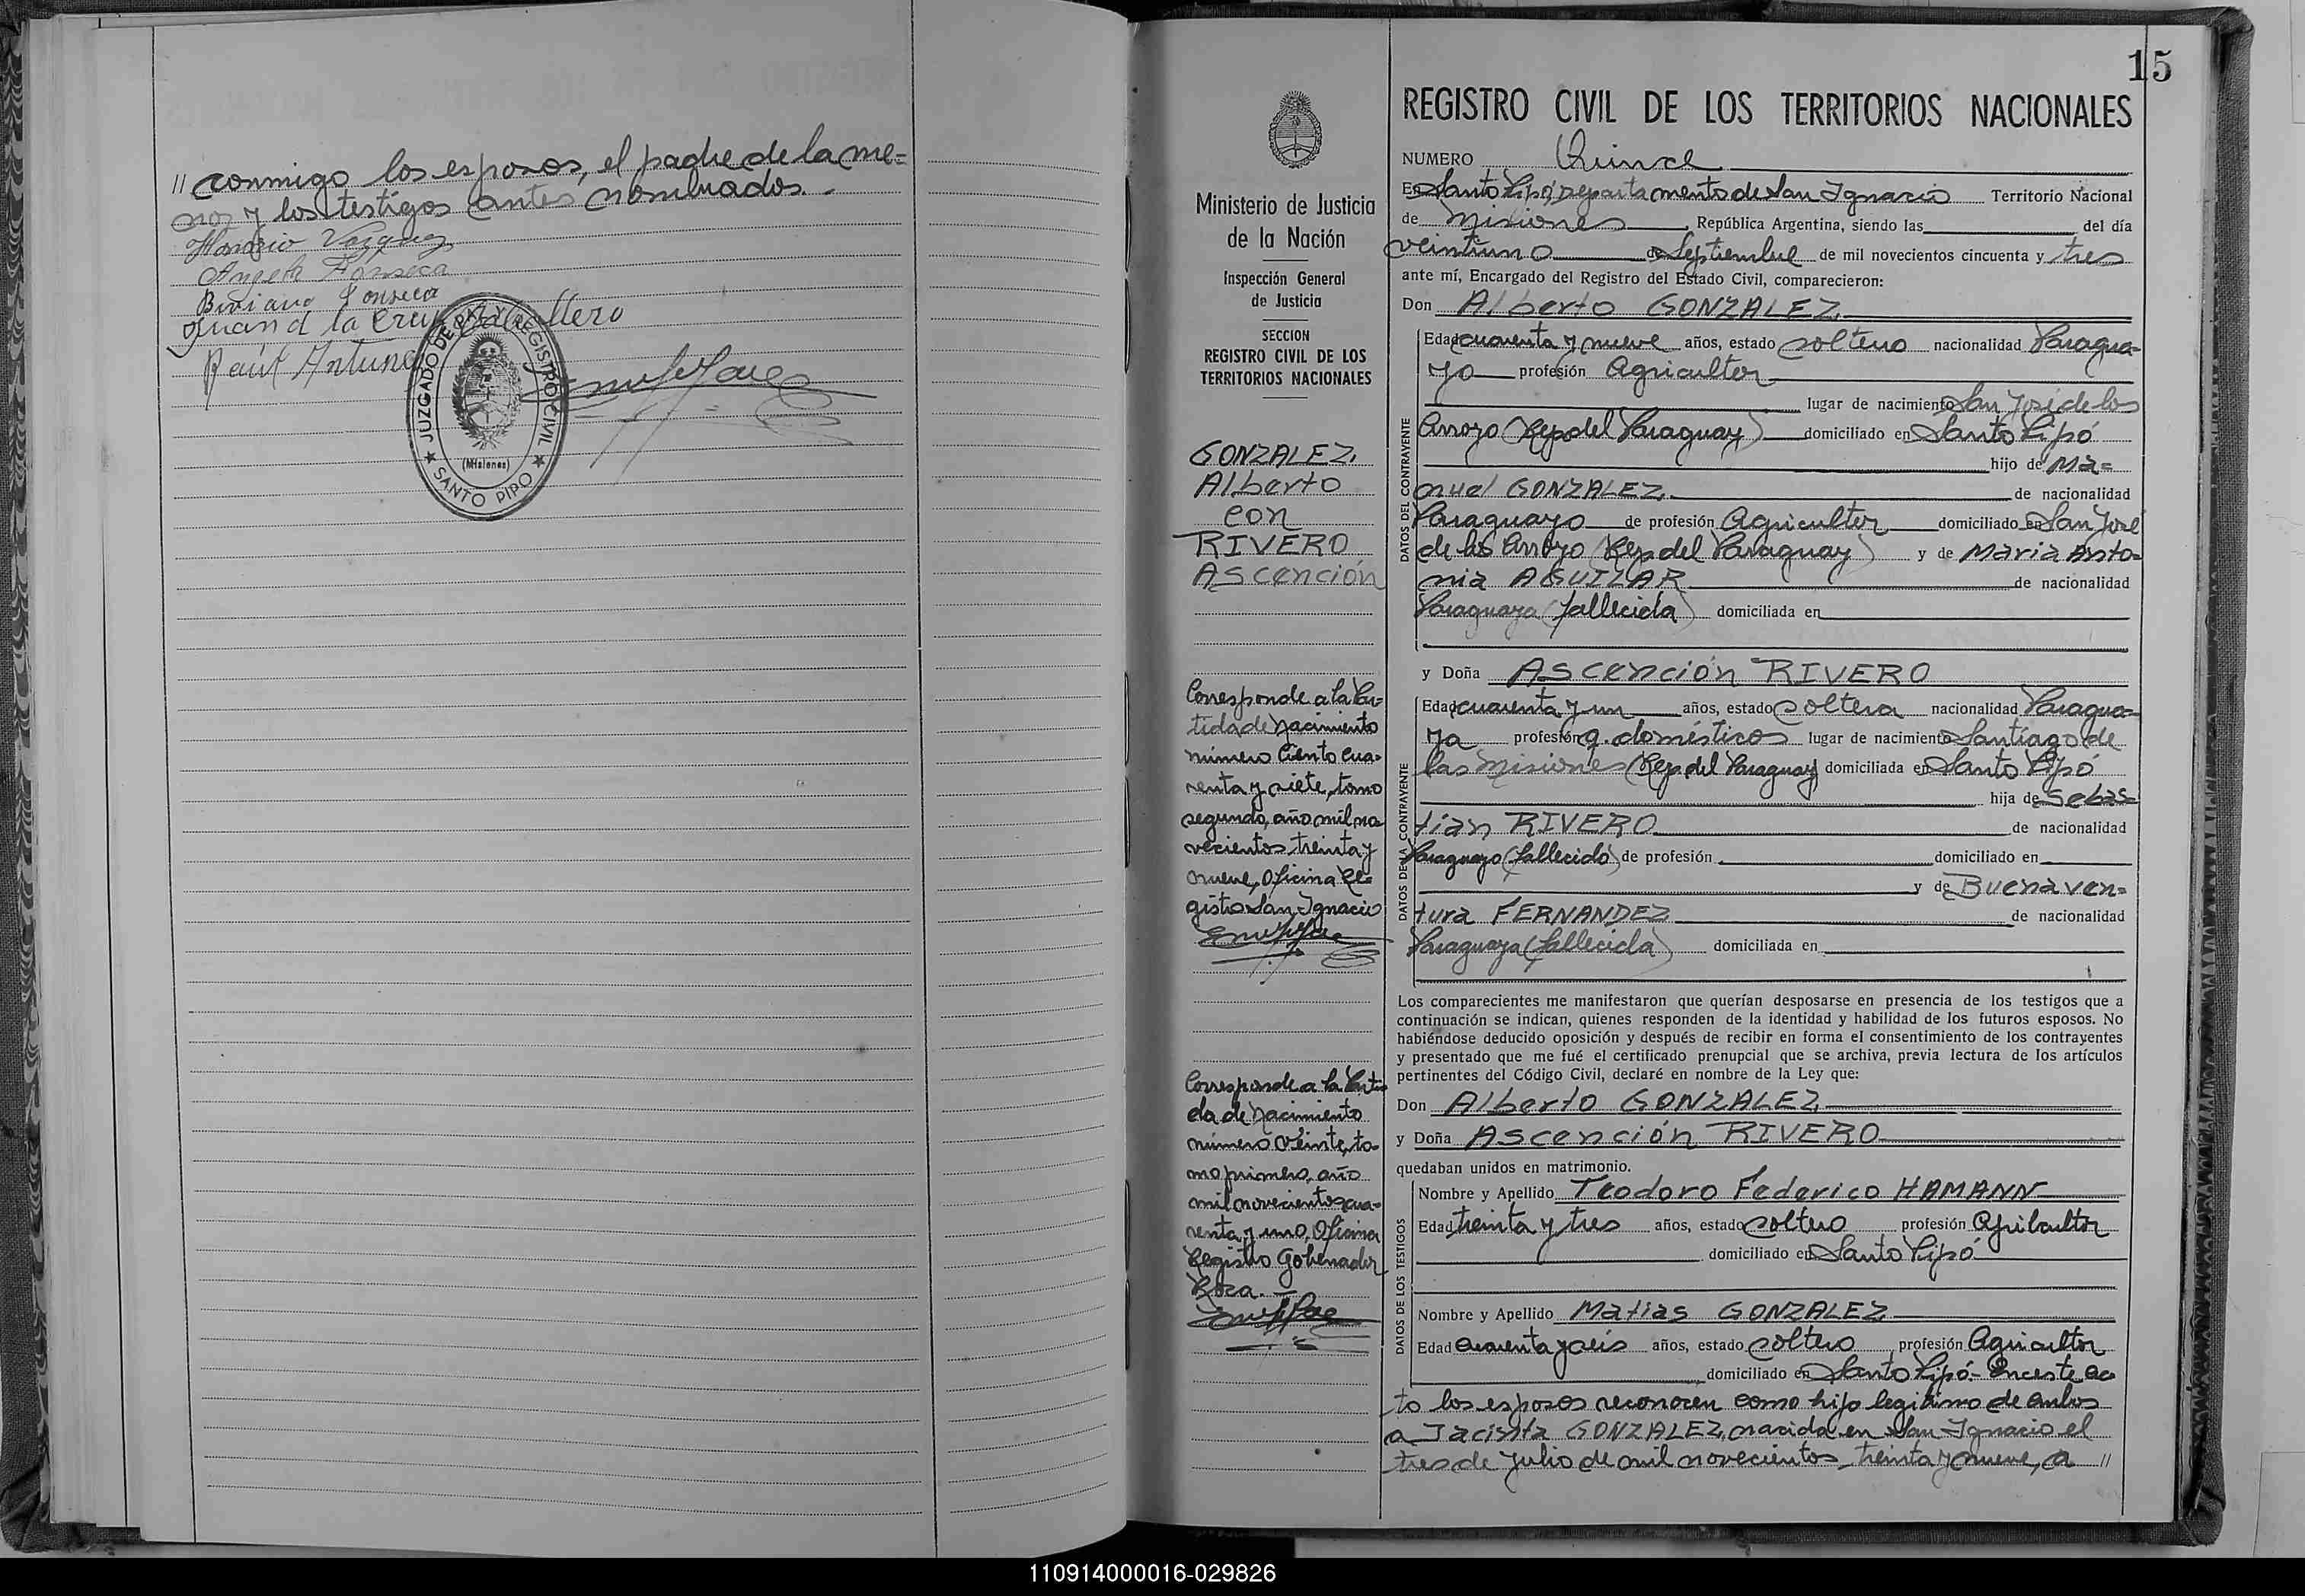 // conmigo los esposos, el padre de la me=
nor y los testigos antes nombrados.-
Horacio Vazquez
Angela Fonseca
Biviano Fonseca
Juan d la Cruz Caballero
Raúl Antunez
★ JUZGADO DE PAZ Y REGISTRO CIVIL ★
(Misiones)
SANTO PIPO
15
Ministerio de Justicia
de la Nación
Inspección General
de Justicia
SECCION
REGISTRO CIVIL DE LOS
TERRITORIOS NACIONALES
GONZALEZ,
Alberto
con
RIVERO
Ascención
Corresponde a la Par-
tida de Nacimiento
número Ciento cua-
renta y siete, tomo
segundo, año mil no-
vecientos treinta y
nueve, Oficina Re-
gistro San Ignacio
Corresponde a la Parti-
da de Nacimiento
número Veinte, to-
mo primero, año
mil novecientos cua-
renta y uno, Oficina
Registro Gobernador
Roca.-
REGISTRO CIVIL DE LOS TERRITORIOS NACIONALES
NUMERO Quince
En Santo Pipó, Departamento de San Ignacio Territorio Nacional
de Misiones, República Argentina, siendo las del día
veintiuno de Septiembre de mil novecientos cincuenta y tres
ante mí, Encargado del Registro del Estado Civil, comparecieron:
Don Alberto GONZALEZ,
DATOS DEL CONTRAYENTE
Edad cuarenta y nueve años, estado soltero nacionalidad Paragua=
yo profesión Agricultor
lugar de nacimiento San José de los
Arroyo (Rep. del Paraguay) domiciliado en Santo Pipó
hijo de Ma=
nuel GONZALEZ, de nacionalidad
Paraguayo de profesión Agricultor domiciliado en San José
de los Arroyo (Rep. del Paraguay) y de Maria Anto=
nia AGUILAR de nacionalidad
Paraguaya (fallecida) domiciliada en
y Doña Ascención RIVERO
DATOS DE LA CONTRAYENTE
Edad cuarenta y un años, estado soltera nacionalidad Paragua=
ya profesión q. domésticos lugar de nacimiento Santiago de
las Misiones (Rep. del Paraguay) domiciliada en Santo Pipó
hija de Sebas=
tián RIVERO de nacionalidad
Paraguayo (fallecido) de profesión domiciliado en
y de Buenaven=
tura FERNANDEZ de nacionalidad
Paraguaya (fallecida) domiciliada en
Los comparecientes me manifestaron que querían desposarse en presencia de los testigos que a
continuación se indican, quienes responden de la identidad y habilidad de los futuros esposos. No
habiéndose deducido oposición y después de recibir en forma el consentimiento de los contrayentes
y presentado que me fué el certificado prenupcial que se archiva, previa lectura de los artículos
pertinentes del Código Civil, declaré en nombre de la Ley que:
Don Alberto GONZALEZ
y Doña Ascención RIVERO
quedaban unidos en matrimonio.
DATOS DE LOS TESTIGOS
Nombre y Apellido Teodoro Federico HAMANN
Edad treinta y tres años, estado soltero profesión Agricultor
domiciliado en Santo Pipó
Nombre y Apellido Matias GONZALEZ
Edad cuarenta y seis años, estado soltero profesión Agricultor
domiciliado en Santo Pipó.- En este ac
to los esposos reconocen como hijo legítimo de ambos
a Jacinta GONZALEZ, nacida en San Ignacio el
tres de Julio de mil novecientos treinta y nueve, a //
110914000016-029826